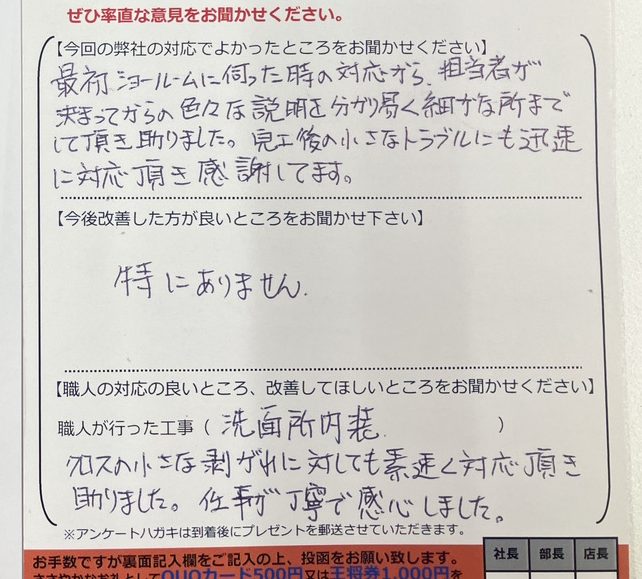 ぜひ率直な意見をお聞かせください。
【今回の弊社の対応でよかったところをお聞かせください】
最初ショールームに伺った時の対応から、担当者が
決まってからの色々な説明を分かり易く細かな所まで
して頂き助りました。完工後の小さなトラブルにも迅速
に対応頂き感謝してます。
【今後改善した方が良いところをお聞かせ下さい】
特にありません.
【職人の対応の良いところ、改善してほしいところをお聞かせください】
職人が行った工事（ 洗面所内装 ）
クロスの小さな剥がれに対しても素速く対応頂き
助りました。仕事が丁寧で感心しました。
※アンケートハガキは到着後にプレゼントを郵送させていただきます。
お手数ですが裏面記入欄をご記入の上、投函をお願い致します。
ささやかなお礼としてQUOカード500円又は王将券1,000円を
社長 部長 店長